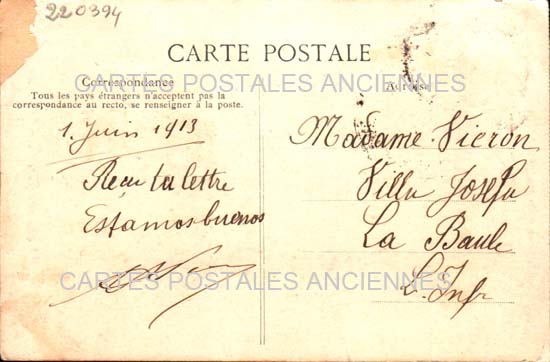 220394
CARTE POSTALE
CARTES POSTALES ANCIENNES
Correspondance
Adresse
Tous les pays étrangers n'acceptent pas la
correspondance au recto, se renseigner à la poste.
1. Juin 1913
Reçu ta lettre
Estamos buenos
Madame Vieron
Villa Josepa
La Baule
L. Infr
CARTES POSTALES ANCIENNES